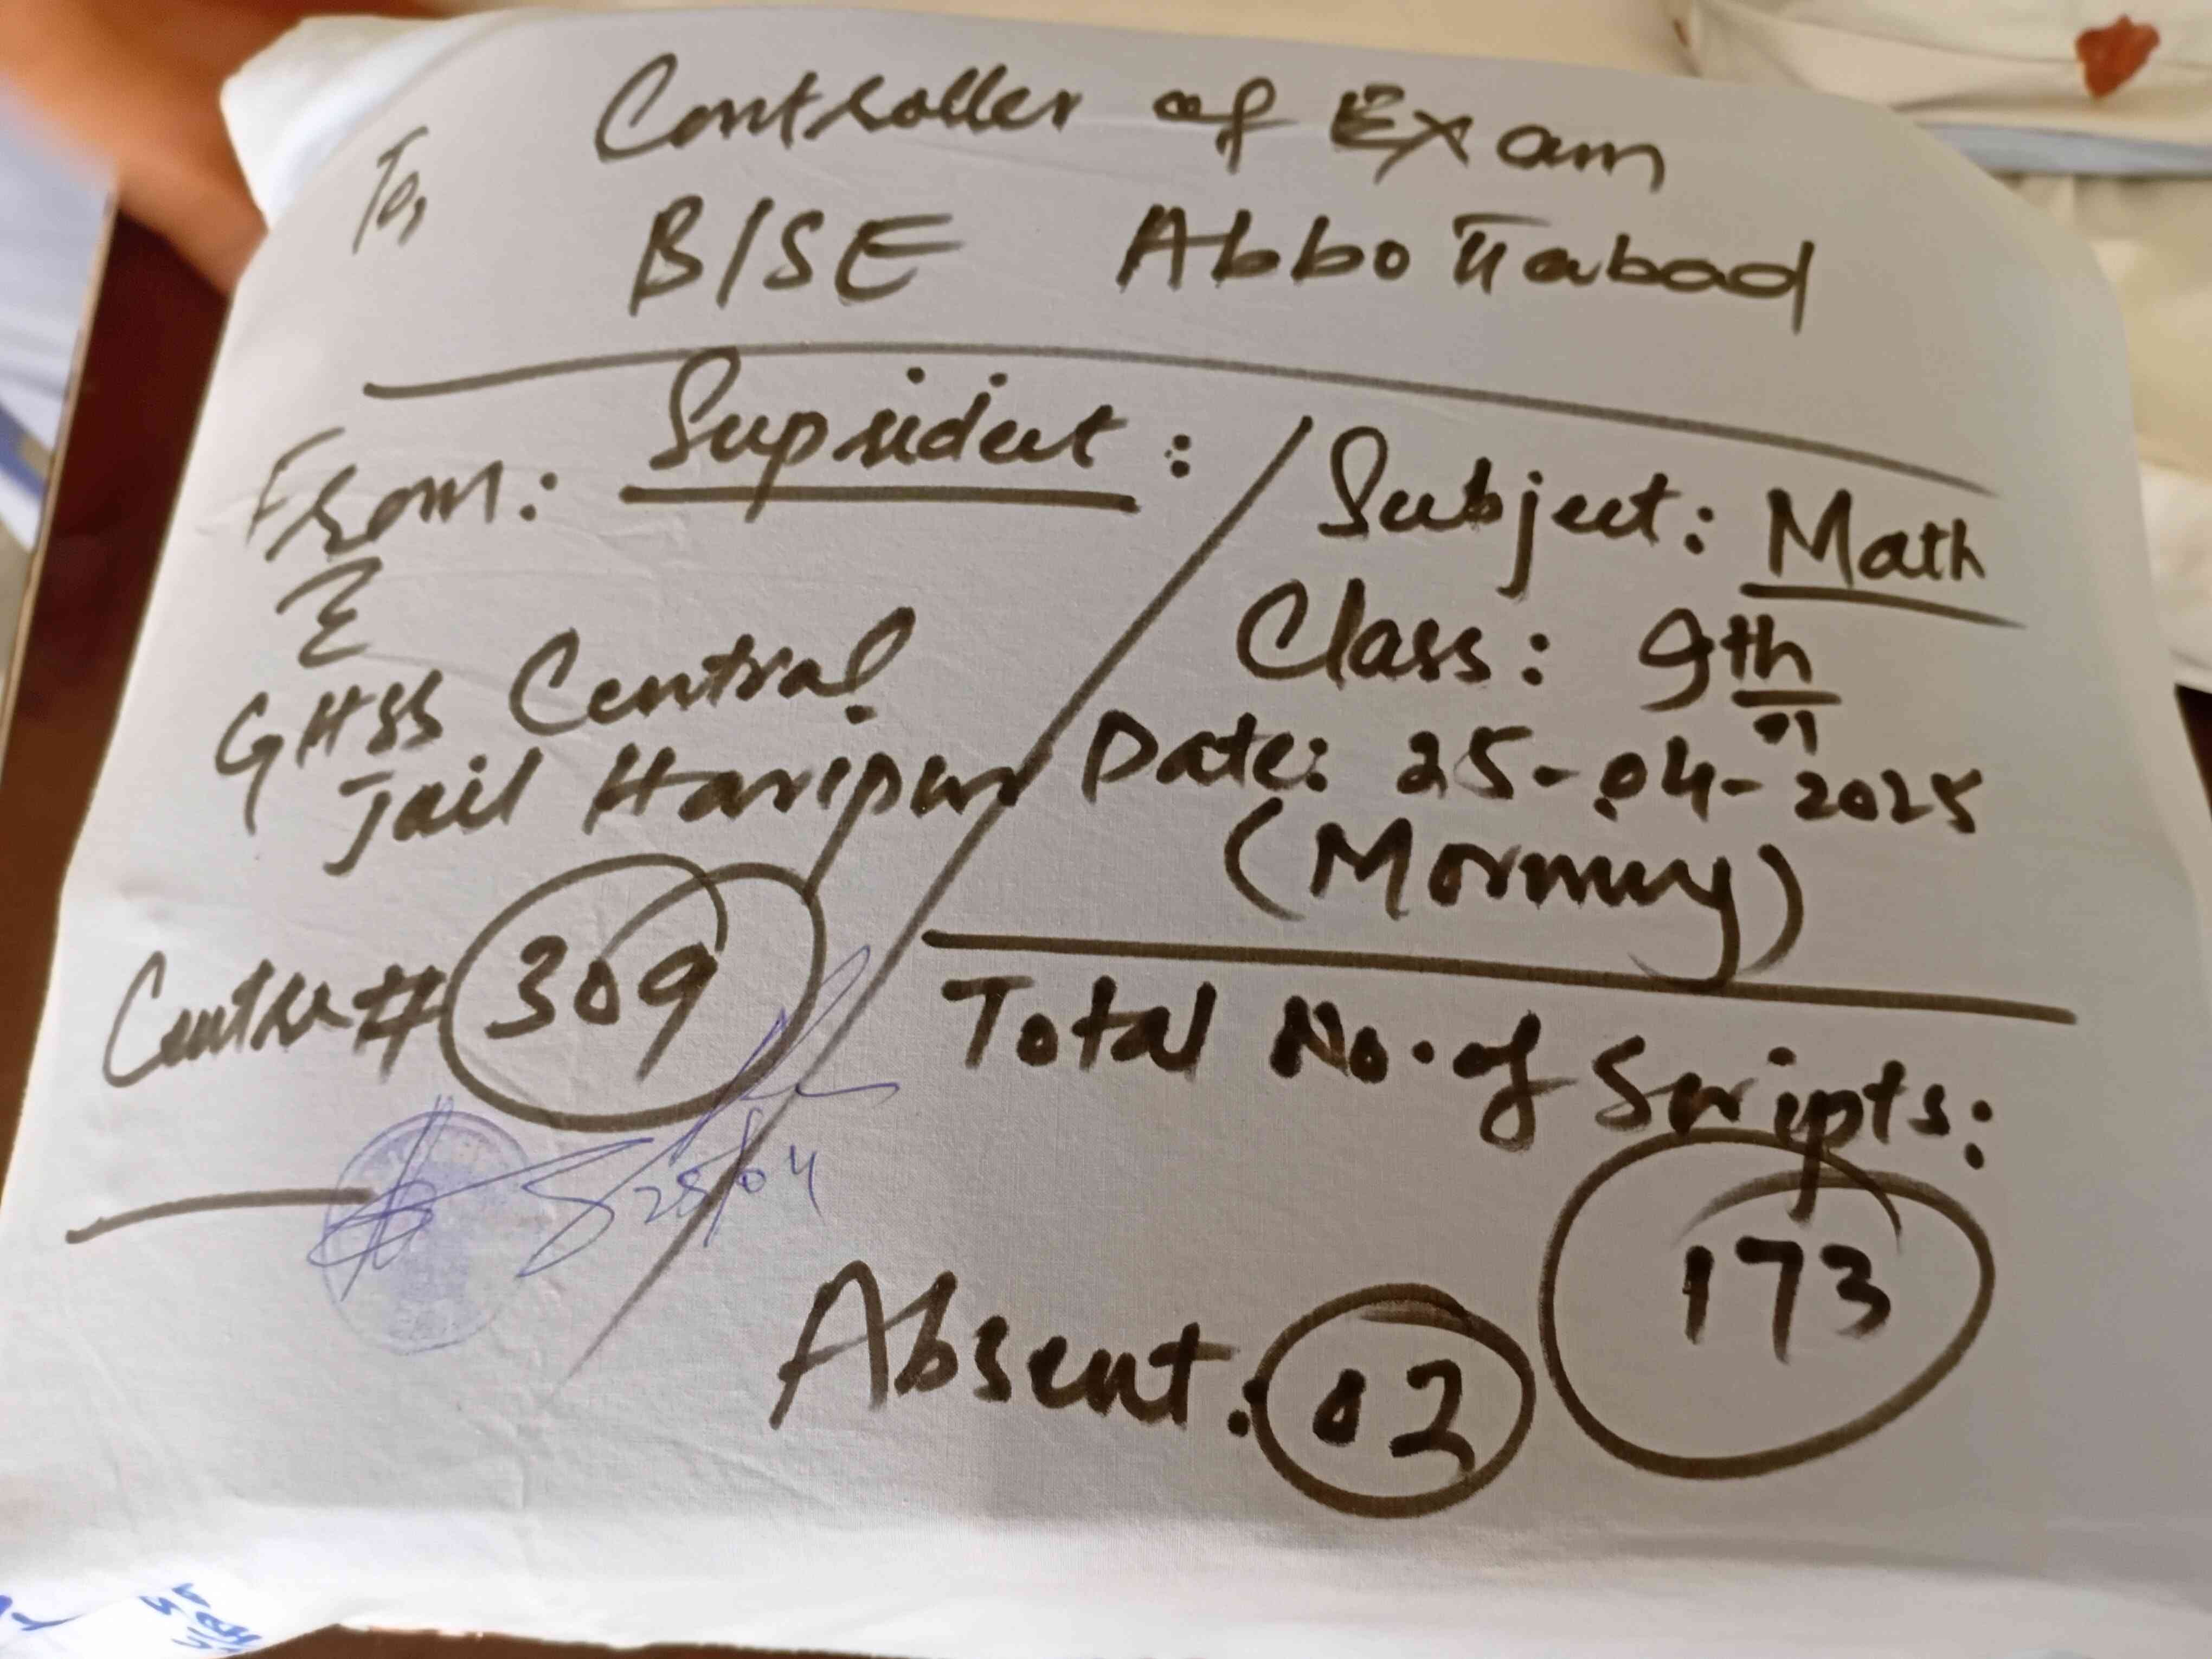 To,
Controller of Exam
BISE Abbottabad
From: Supridient:
GHSS Central
Jail Haripur
Centre # 309
25/04
Subject: Math
Class: 9th
Date: 25-04-2025
(Morning)
Total No. of Scripts:
173
Absent: 02